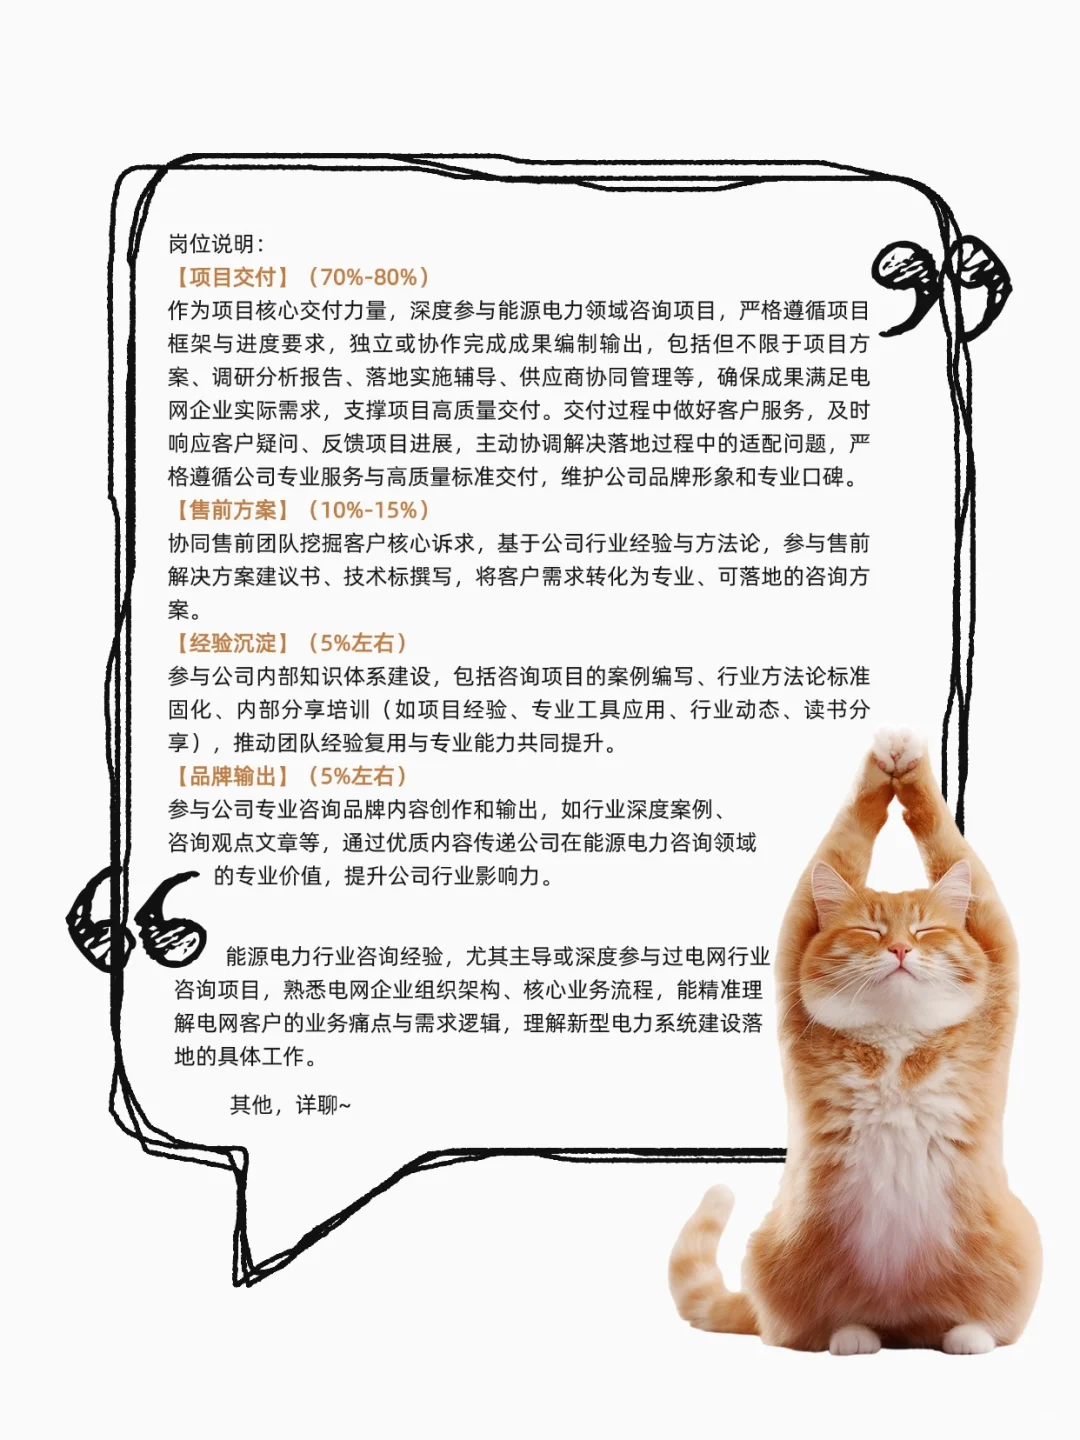 岗位说明：
【项目交付】（70%-80%）
作为项目核心交付力量，深度参与能源电力领域咨询项目，严格遵循项目
框架与进度要求，独立或协作完成成果编制输出，包括但不限于项目方
案、调研分析报告、落地实施辅导、供应商协同管理等，确保成果满足电
网企业实际需求，支撑项目高质量交付。交付过程中做好客户服务，及时
响应客户疑问、反馈项目进展，主动协调解决落地过程中的适配问题，严
格遵循公司专业服务与高质量标准交付，维护公司品牌形象和专业口碑。
【售前方案】（10%-15%）
协同售前团队挖掘客户核心诉求，基于公司行业经验与方法论，参与售前
解决方案建议书、技术标撰写，将客户需求转化为专业、可落地的咨询方
案。
【经验沉淀】（5%左右）
参与公司内部知识体系建设，包括咨询项目的案例编写、行业方法论标准
固化、内部分享培训（如项目经验、专业工具应用、行业动态、读书分
享），推动团队经验复用与专业能力共同提升。
【品牌输出】（5%左右）
参与公司专业咨询品牌内容创作和输出，如行业深度案例、
咨询观点文章等，通过优质内容传递公司在能源电力咨询领域
的专业价值，提升公司行业影响力。
能源电力行业咨询经验，尤其主导或深度参与过电网行业
咨询项目，熟悉电网企业组织架构、核心业务流程，能精准理
解电网客户的业务痛点与需求逻辑，理解新型电力系统建设落
地的具体工作。
其他，详聊~